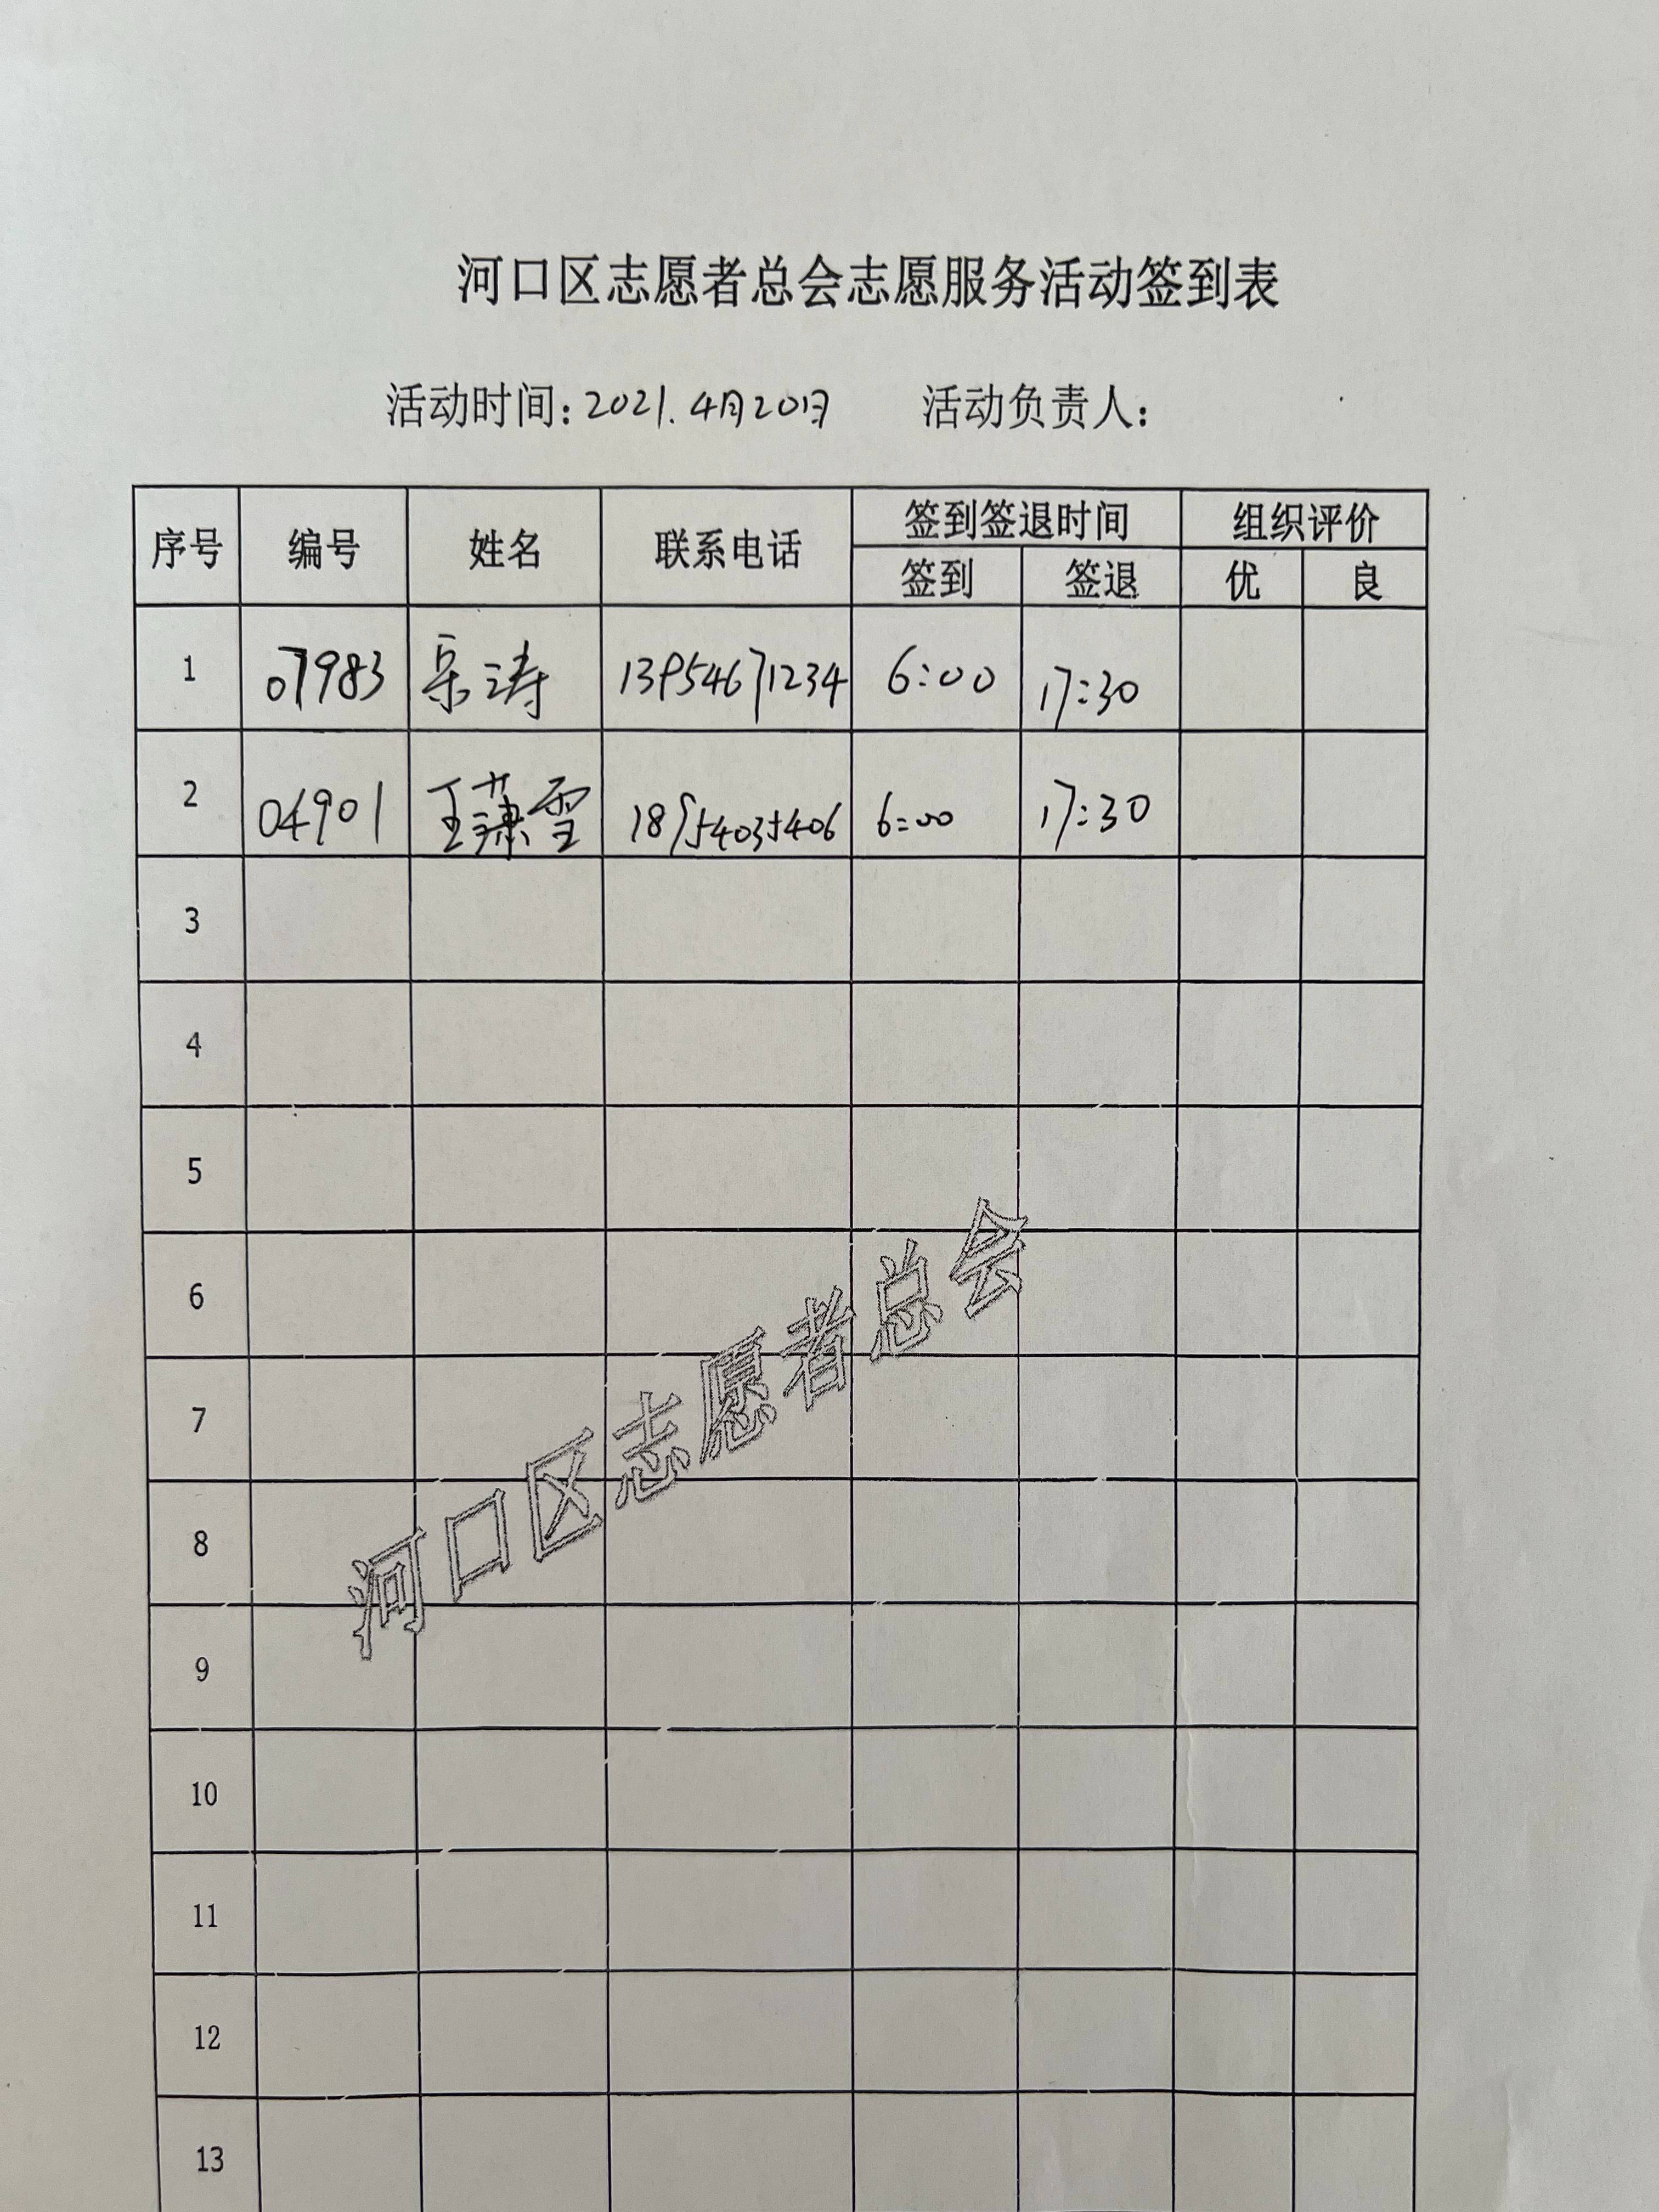 河口区志愿者总会志愿服务活动签到表
活动时间：2021.4月20日 活动负责人：
序号 编号 姓名 联系电话 签到签退时间 组织评价
签到 签退 优 良
1 07983 涛 13954671234 6:00 17:30
2 04901 王 雪 18954035406 6:00 17:30
3
4
5
6
7
8
9
10
11
12
13
河口区志愿者总会